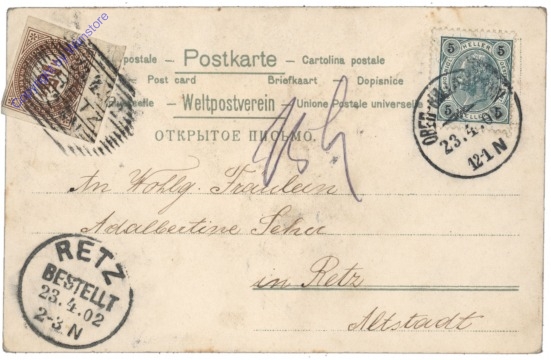 postale – Postkarte – Cartolina postale
Post card Briefkaart – Dopisnice
Weltpostverein – Unione Postale universelle
ОТКРЫТОЕ ПИСЬМО.
5 HELLER 5
23.4.02
12-1 N
An Wohlg. Fräulein
Adalbertine
in Retz
Altstadt
RETZ
BESTELLT
23.4.02
2-3 N